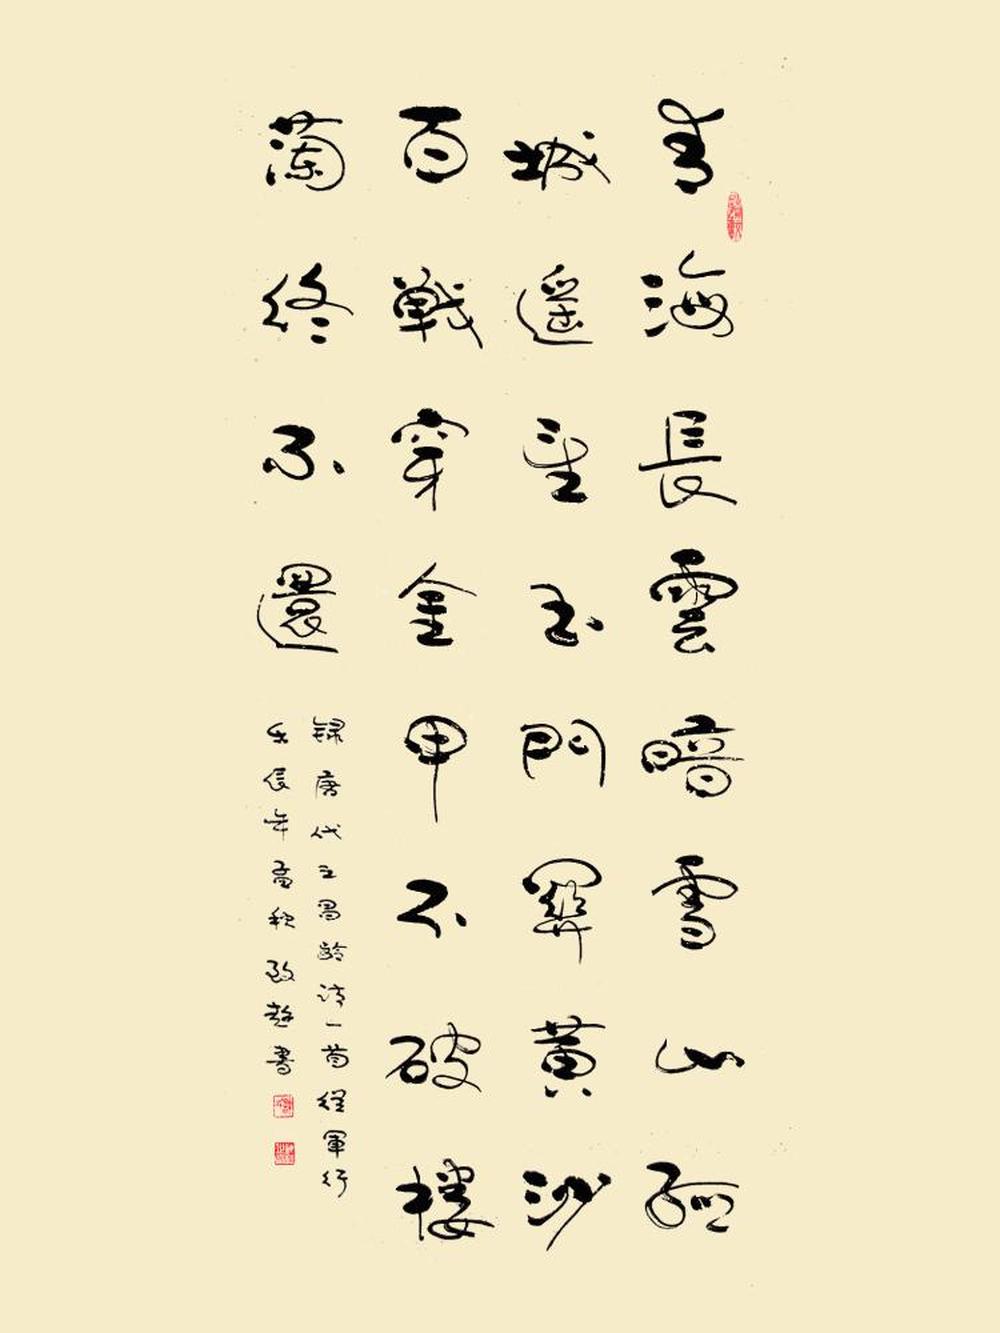 青海長雲暗雪山孤
城遥望玉門關黄沙
百戦穿金甲不破樓
蘭終不還
録唐代王昌齡詩一首從軍行
壬辰年高秋書